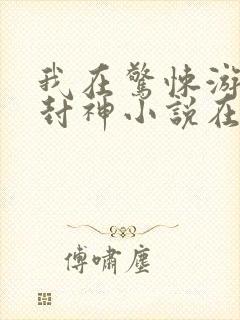 我在驚悚游
封神小說在
傅嘯塵